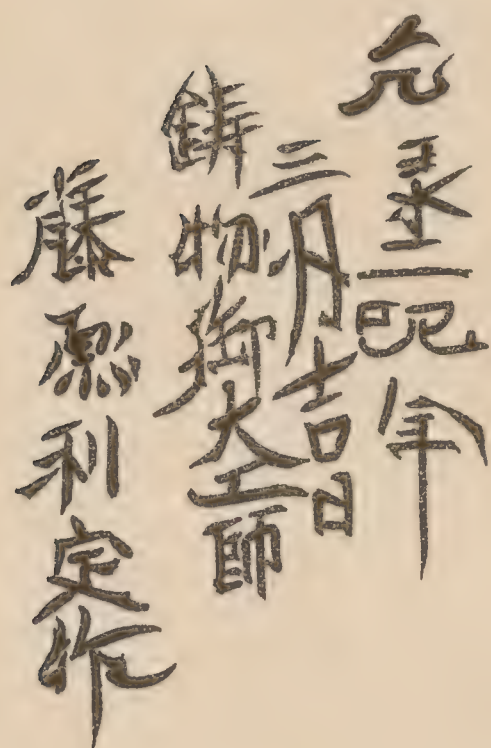 元彔二己巳年
三月吉日
鋳物御大工師
藤原利定作